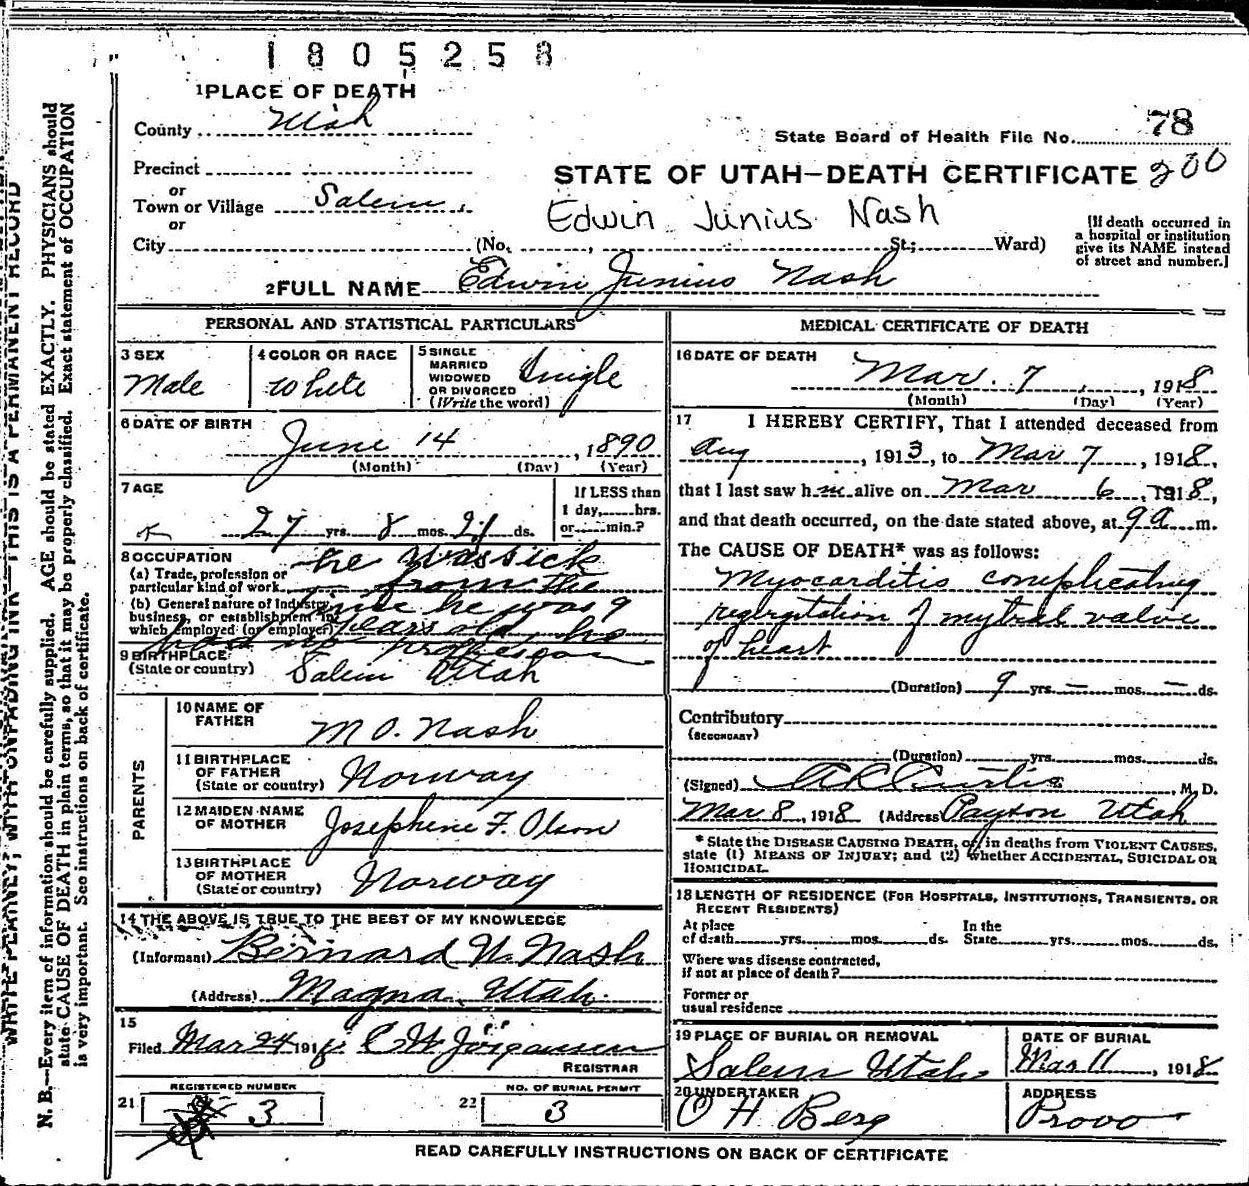 1805258
1 PLACE OF DEATH
County Utah
State Board of Health File No. 78
Precinct
STATE OF UTAH—DEATH CERTIFICATE 200
or
Town or Village Salem
Edwin Junius Nash
or
City (No. , St.; Ward)
[If death occurred in
a hospital or institution
give its NAME instead
of street and number.]
2 FULL NAME Edwin Junius Nash
PERSONAL AND STATISTICAL PARTICULARS
3 SEX
Male
4 COLOR OR RACE
White
5 SINGLE
MARRIED
WIDOWED
OR DIVORCED
(Write the word)
Single
6 DATE OF BIRTH
June 14, 1890
(Month) (Day) (Year)
7 AGE
27 yrs. 8 mos. 21 ds.
If LESS than
1 day, hrs.
or min.?
8 OCCUPATION
(a) Trade, profession or
particular kind of work
(b) General nature of Industry,
business, or establishment in
which employed (or employer)
he was sick
from the
time he was 9
years old, he
had no profession
9 BIRTHPLACE
(State or country) Salem Utah
PARENTS
10 NAME OF
FATHER M O. Nash
11 BIRTHPLACE
OF FATHER
(State or country) Norway
12 MAIDEN NAME
OF MOTHER Josephine F. Olson
13 BIRTHPLACE
OF MOTHER
(State or country) Norway
14 THE ABOVE IS TRUE TO THE BEST OF MY KNOWLEDGE
(Informant) Bernard N. Nash
(Address) Magna, Utah.
15
Filed Mar 24 1918 C W Jörgansen
REGISTRAR
21 REGISTERED NUMBER
3
22 NO. OF BURIAL PERMIT
3
MEDICAL CERTIFICATE OF DEATH
16 DATE OF DEATH
Mar. 7, 1918
(Month) (Day) (Year)
17 I HEREBY CERTIFY, That I attended deceased from
Aug, 1913, to Mar 7, 1918,
that I last saw him alive on Mar 6, 1918,
and that death occurred, on the date stated above, at 9 a m.
The CAUSE OF DEATH* was as follows:
Myocarditis complicating
regurgitation of mytral valve
of heart
(Duration) 9 yrs. — mos. — ds.
Contributory
(SECONDARY)
(Duration) yrs. mos. ds.
(Signed) A L Curtis, M. D.
Mar 8, 1918 (Address) Payson Utah
* State the DISEASE CAUSING DEATH, or, in deaths from VIOLENT CAUSES,
state (1) MEANS OF INJURY; and (2) whether ACCIDENTAL, SUICIDAL OR
HOMICIDAL.
18 LENGTH OF RESIDENCE (FOR HOSPITALS, INSTITUTIONS, TRANSIENTS, OR
RECENT RESIDENTS)
At place
of death yrs. mos. ds.
In the
State yrs. mos. ds.
Where was disease contracted,
if not at place of death?
Former or
usual residence
19 PLACE OF BURIAL OR REMOVAL
Salem Utah
DATE OF BURIAL
Mar 11, 1918
20 UNDERTAKER
O H Berg
ADDRESS
Provo
READ CAREFULLY INSTRUCTIONS ON BACK OF CERTIFICATE
WRITE PLAINLY, WITH UNFADING INK—THIS IS A PERMANENT RECORD
N. B.—Every item of information should be carefully supplied. AGE should be stated EXACTLY. PHYSICIANS should
state CAUSE OF DEATH in plain terms, so that it may be properly classified. Exact statement of OCCUPATION
is very important. See instructions on back of certificate.